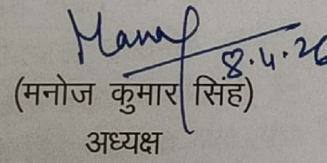 Manoj
8.4.26
(मनोज कुमार सिंह)
अध्यक्ष